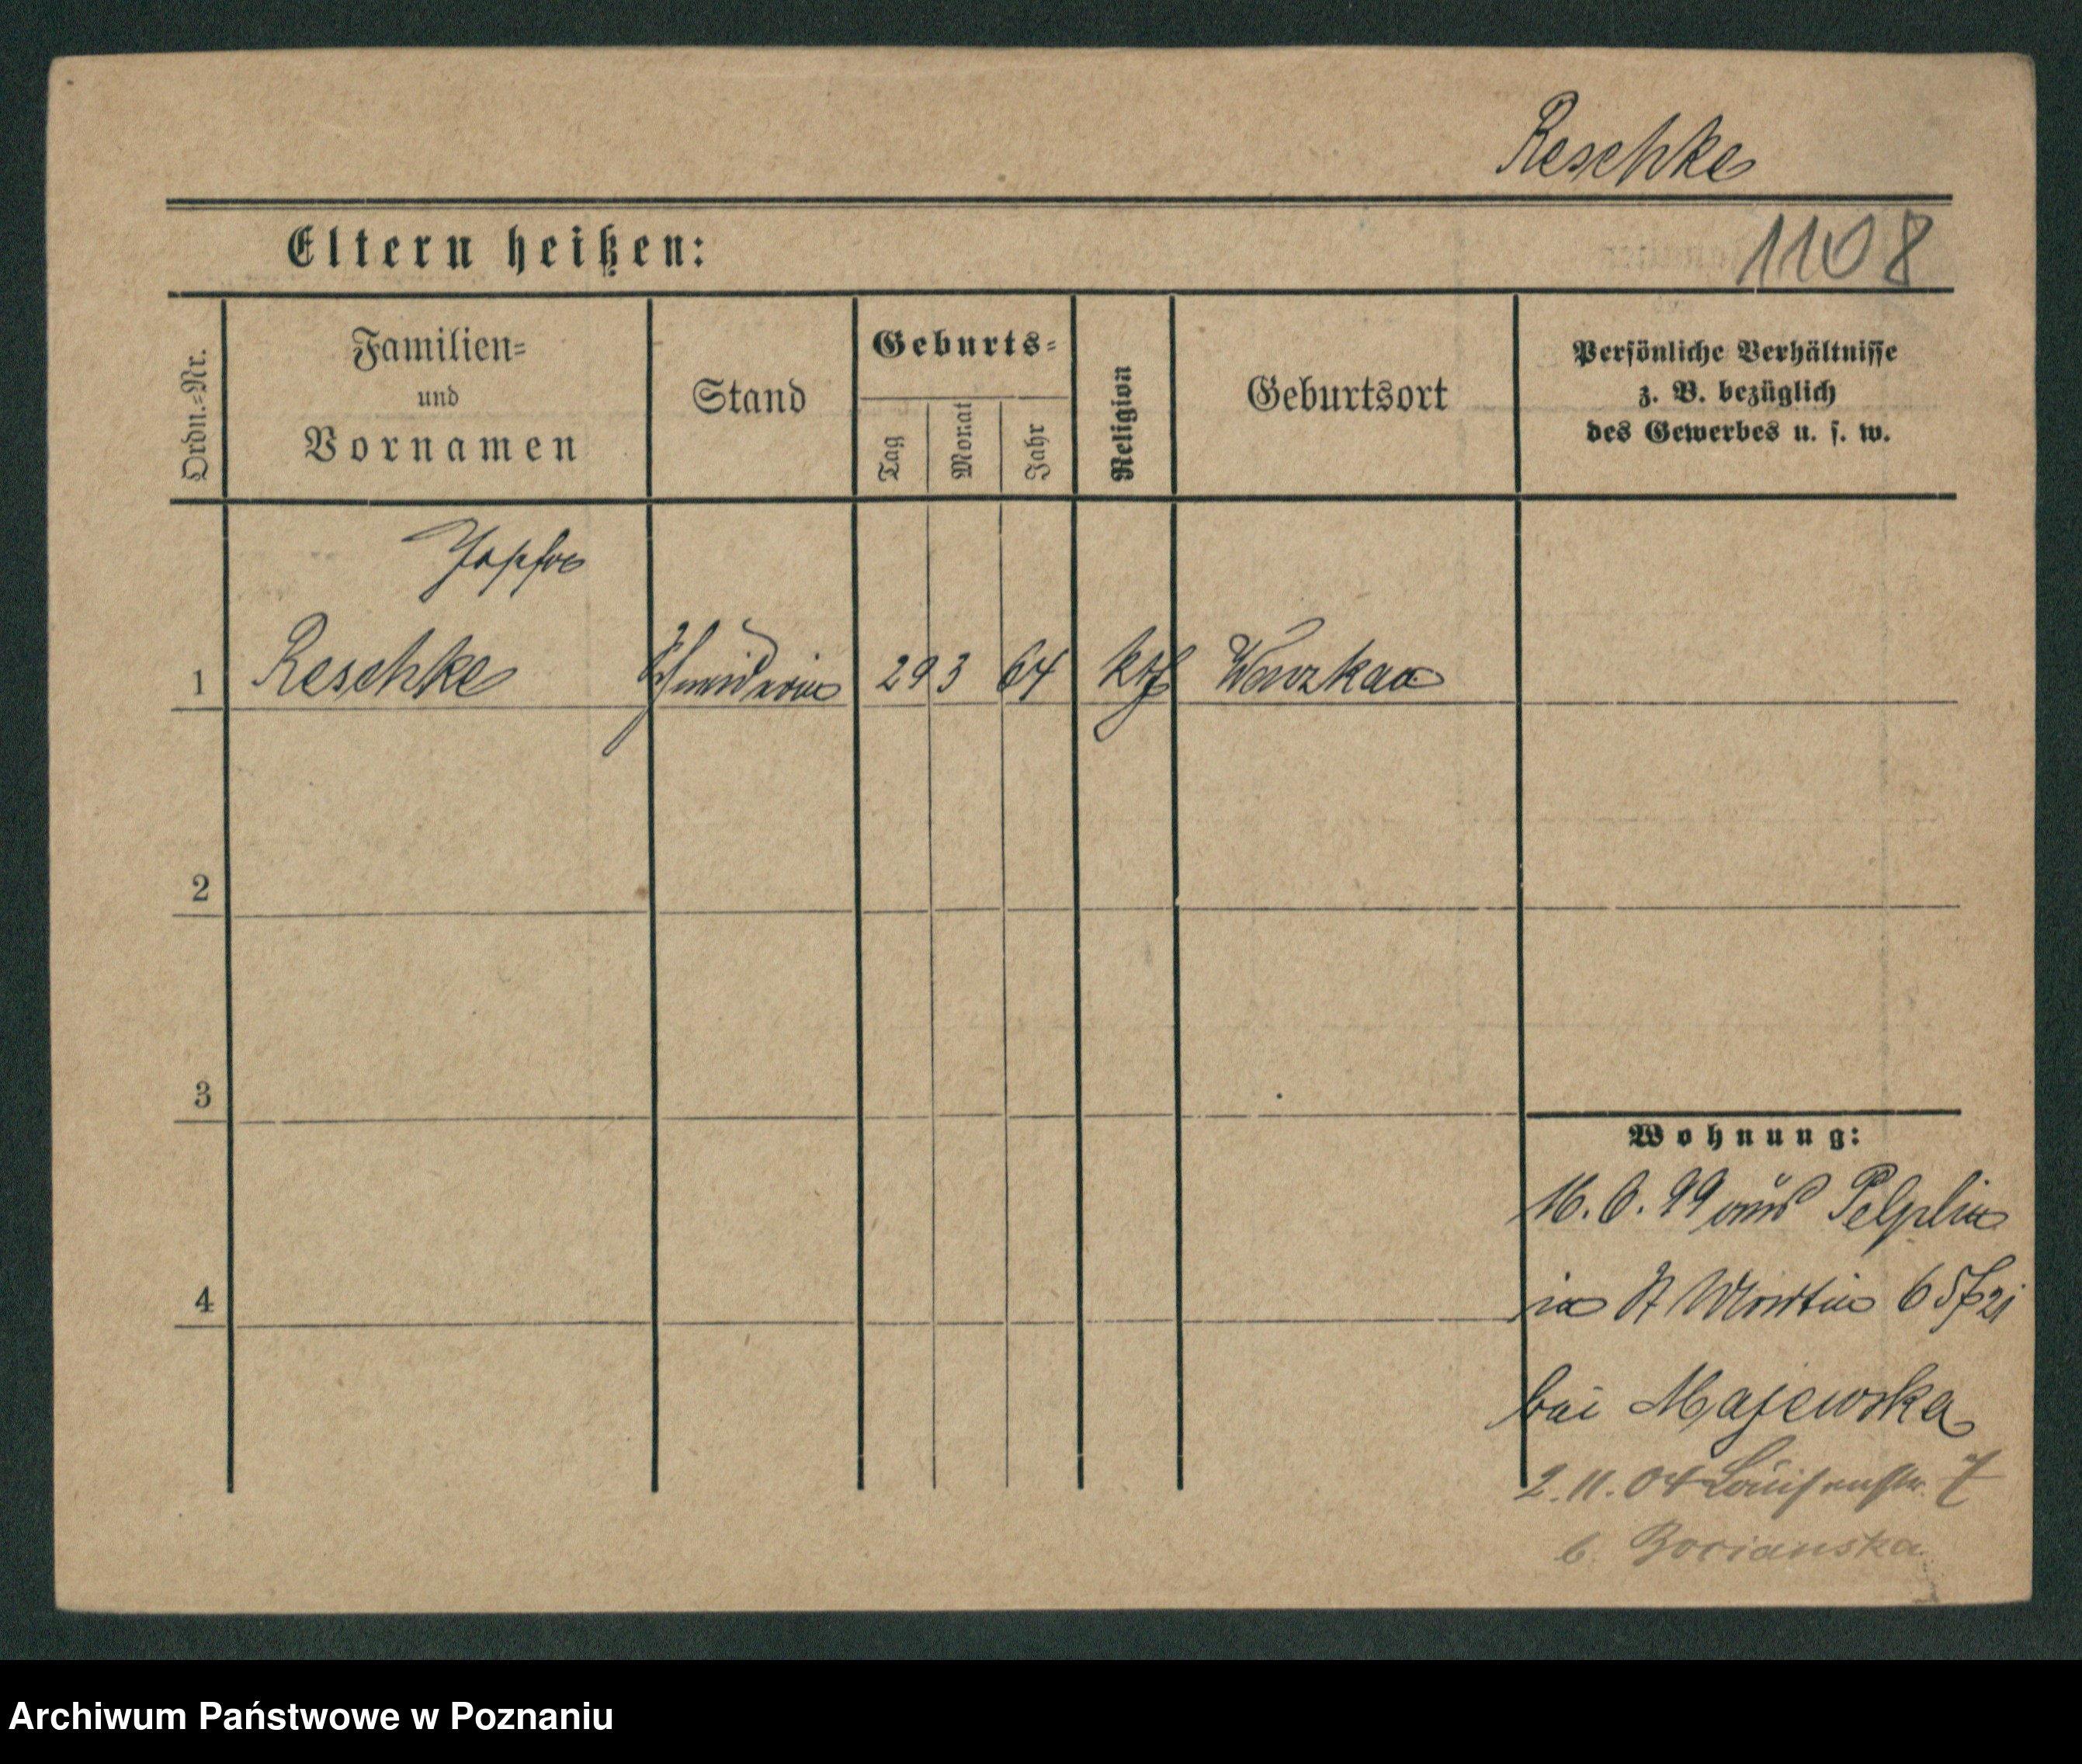 Reschke
Eltern heißen:
1108
Ordn.-Nr.
Familien-
und
Vornamen
Stand
Geburts-
Tag
Monat
Jahr
Religion
Geburtsort
Persönliche Verhältnisse
z. B. bezüglich
des Gewerbes u. s. w.
1 Reschke Schneiderin 29 3 64 kth
2
3
Wohnung:
16. 6. 99 aus Pelplin
4
in St Martin 65
bei Majewska
2. 11. 04 Louisenstr. 7
b. Borianska
Archiwum Państwowe w Poznaniu